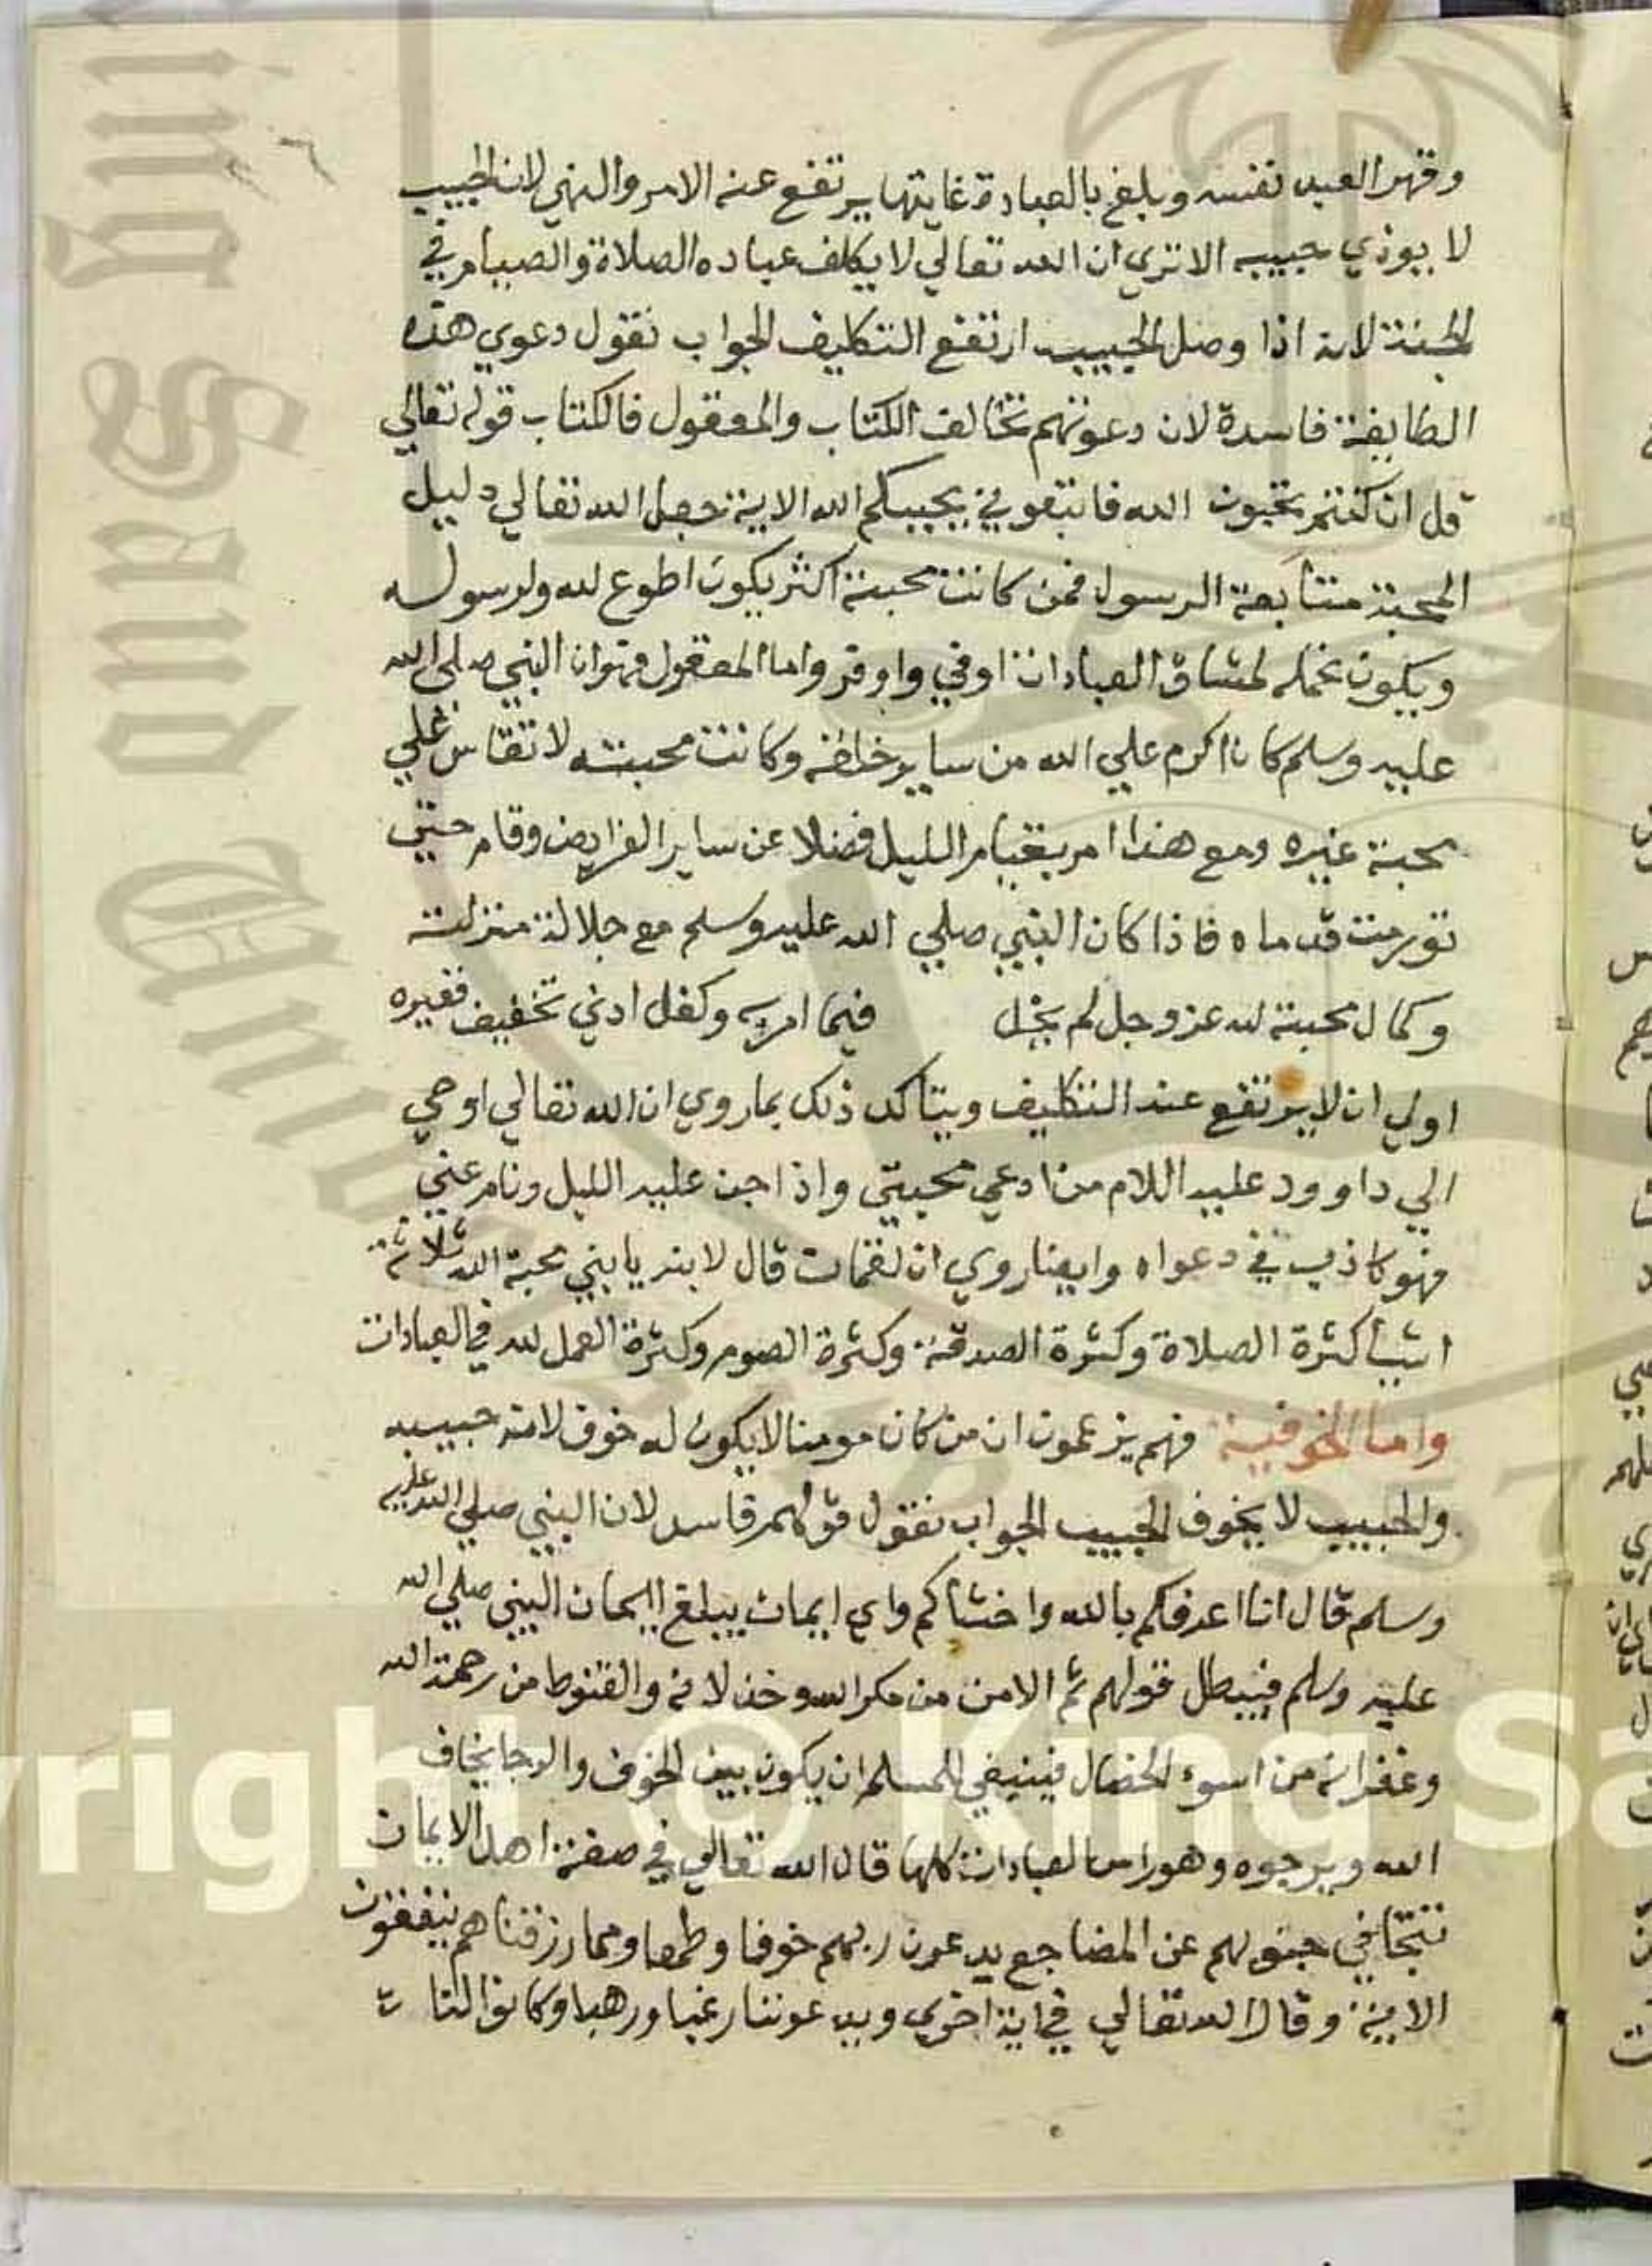 وقهر العبد نفسه وبلغ بالعبادة غايتها يرتفع عنه الامر والنهي لان الحبيب
لا يوذي حبيبه الا تري ان الله تعالي لا يكلف عباده الصلاة والصيام في
الجنة لانه اذا وصل الحبيب ارتفع التكليف الجواب نقول دعوي هذه
الطايفة فاسدة لان دعوتهم تخالف الكتاب والمعقول فالكتاب قوله تعالي
قل ان كنتم تحبون الله فاتبعوني يحببكم الله الاية جعل الله تعالي دليل
المحبة متابعة الرسول فمن كانت محبته اكثر يكون اطوع لله ولرسوله
ويكون تحمله لمشاق العبادات اوفي واوفر واما المعقول فهو ان النبي صلي الله
عليه وسلم كان اكرم علي الله من ساير خلقه وكانت محبته لا تقاس علي
محبة غيره ومع هذا امر بقيام الليل فضلا عن ساير الفرايض وقام حتي
تورمت قدماه فاذا كان النبي صلي الله عليه وسلم مع جلالة منزلته
وكمال محبته لله عز وجل لم يخل فيما امر به وكفل ادني تخفيف فغيره
اولي ان لا يرتفع عنه التكليف ويتاكد ذلك بما روي ان الله تعالي اوحي
الي داوود عليه اللام من ادعي محبتي واذا جن عليه الليل ونام عني
فهو كاذب في دعواه وايضا روي ان لقمان قال لابنه يا بني محبة الله ثلاثة
اشيأ كثرة الصلاة وكثرة الصدقة وكثرة الصوم وكثرة العمل لله في العبادات
واما الخوفية فهم يزعمون ان من كان مومنا لا يكون له خوف لانه حبيبه
والحبيب لا يخوف الحبيب الجواب نقول قولهم فاسد لان النبي صلي الله عليه
وسلم قال انا اعرفكم بالله واخشاكم واي ايمان يبلغ ايمان النبي صلي الله
عليه وسلم فيبطل قولهم ثم الامن من مكر الله وخذلانه والقنوط من رحمة الله
وغفرانه من اسوء الخصال فينبغي للمسلم ان يكون بين الخوف والرجا يخاف
الله ويرجوه وهو راس العبادات كلها قال الله تعالي في صفة اهل الايمان
تتجافي جنوبهم عن المضاجع يدعون ربهم خوفا وطمعا ومما رزقناهم ينفقون
الاية وقال الله تعالي في اية اخري ويدعوننا رغبا ورهبا وكانوا لنا
yright © King Sa